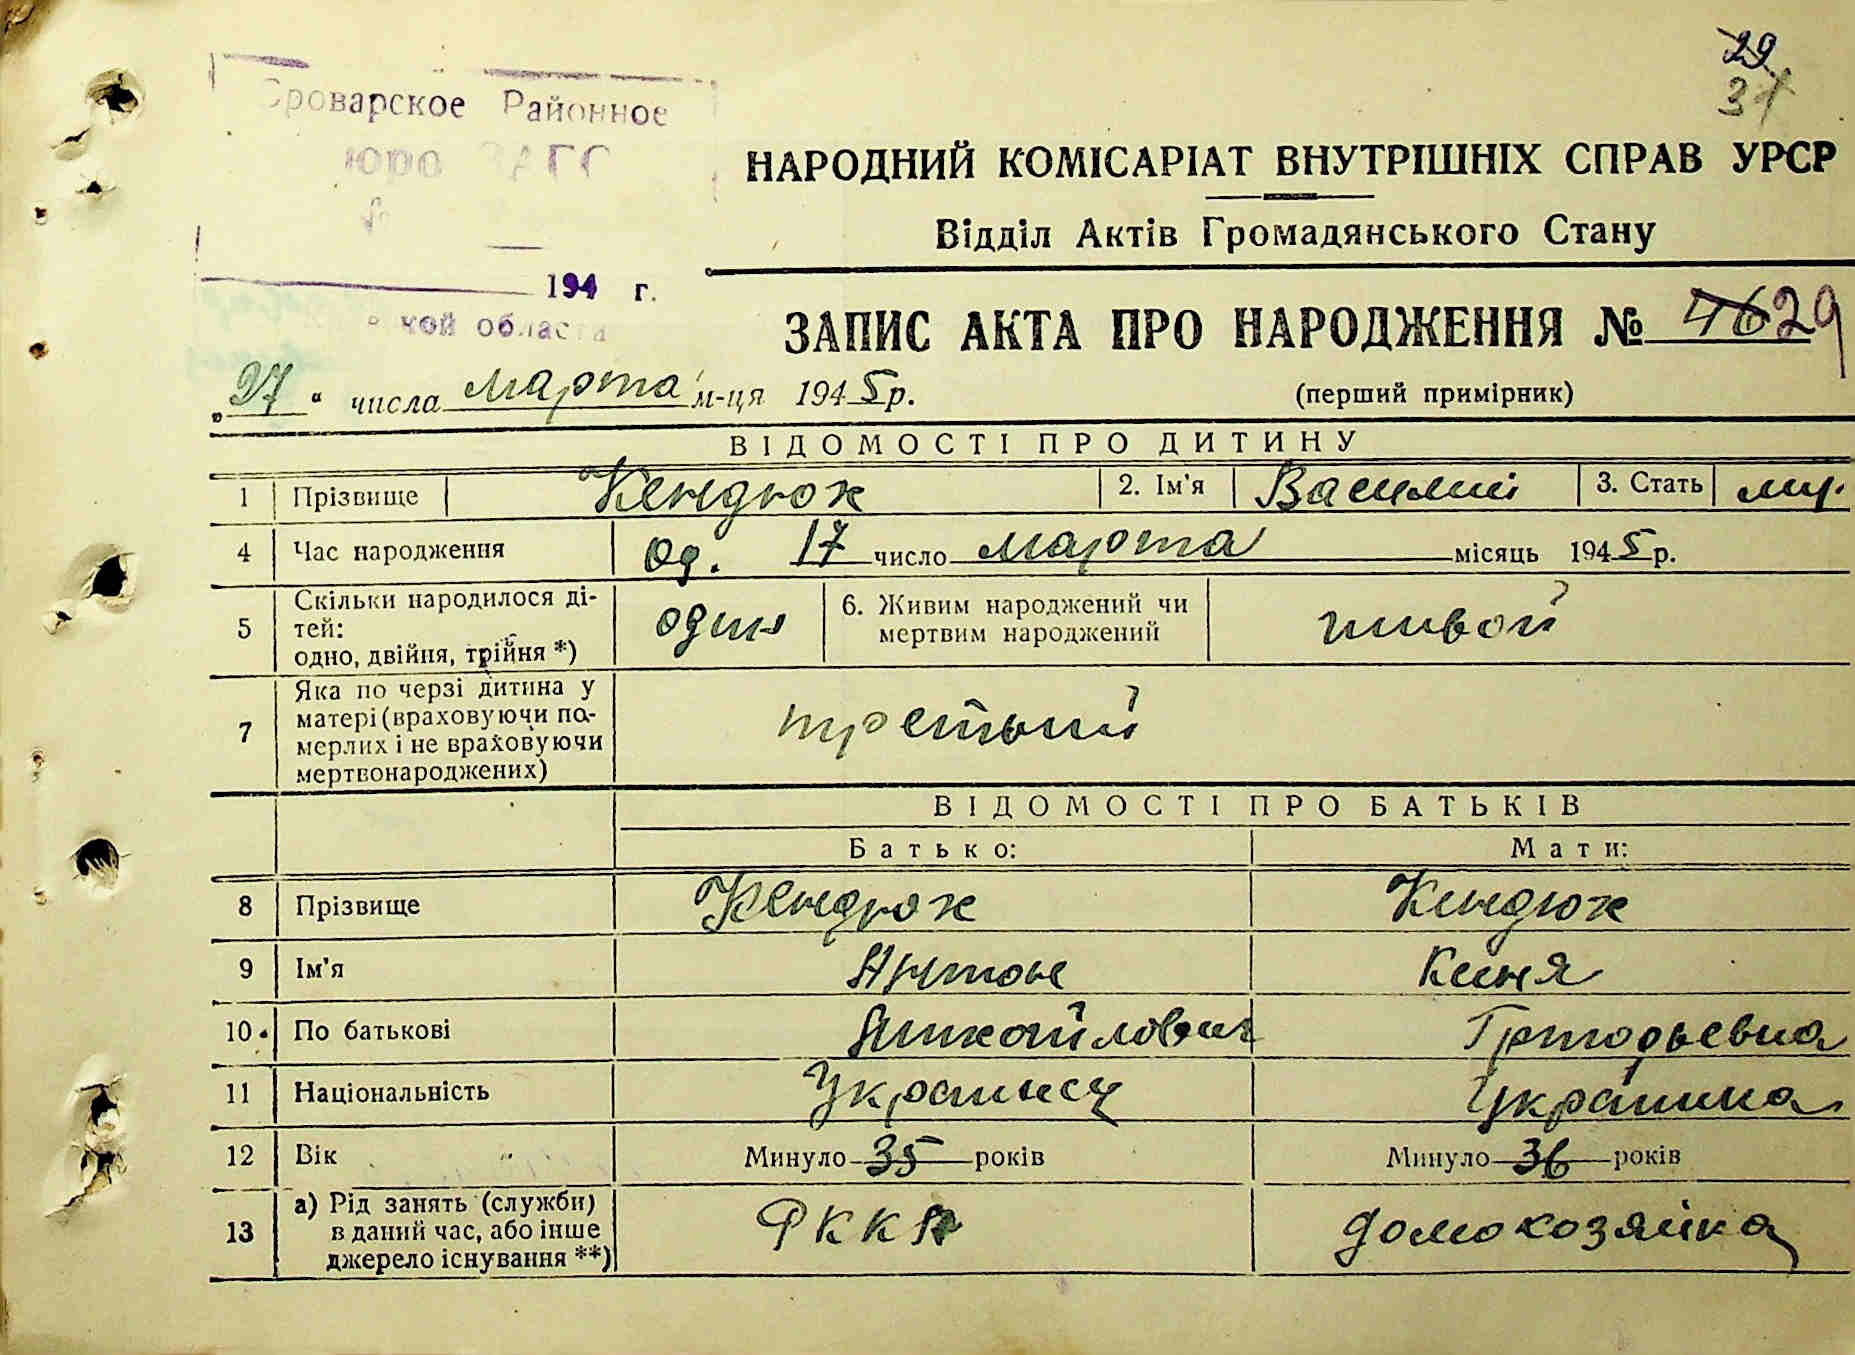 29
31
Броварское Районное
Бюро ЗАГС
194 г.
кой области
НАРОДНИЙ КОМІСАРІАТ ВНУТРІШНІХ СПРАВ УРСР
Відділ Актів Громадянського Стану
ЗАПИС АКТА ПРО НАРОДЖЕННЯ № 46 29
„27“ числа марта м-ця 1945 р.
(перший примірник)
ВІДОМОСТІ ПРО ДИТИНУ
1 Прізвище Кендюх 2. Ім'я Василий 3. Стать муж.
4 Час народження од. 17 число марта місяць 1945 р.
5 Скільки народилося ді-
тей:
одно, двійня, трійня *) один
6. Живим народжений чи
мертвим народжений живой
7 Яка по черзі дитина у
матері (враховуючи по-
мерлих і не враховуючи
мертвонароджених) третьий
ВІДОМОСТІ ПРО БАТЬКІВ
Батько: Мати:
8 Прізвище Кендюх Кендюх
9 Ім'я Антон Киня
10. По батькові Михайлович Григорьевна
11 Національність Украинец Украинка
12 Вік Минуло 35 років Минуло 36 років
13 а) Рід занять (служби)
в даний час, або інше
джерело існування **) РККА домохозяйка